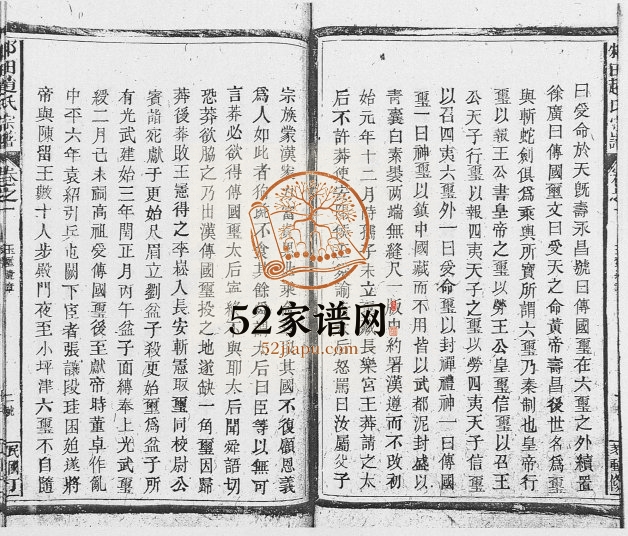 曰受命於天既壽永昌號曰傳國璽在六璽之外續置
徐廣曰傳國璽文曰受天之命黃帝壽昌後世名爲璽
與斬蛇劍俱爲乘輿所寶所謂六璽乃秦制也皇帝行
璽以報王公書皇帝之璽以勞王公皇璽信璽以召王
公天子行璽以報四夷天子之璽以勞四夷天子信璽
以召四夷六璽外一曰受命璽以封禪禮神一曰傳國
璽一曰神璽以鎮中國藏而不用皆以武都泥封盛以
靑囊白素裝两端無縫尺一 中約署漢遵而不改初
始元年十二月 孺子未立 長樂宮王莽請之太
后不許莽使安 諭 后怒罵曰汝屬父子
宗族蒙漢家 富 乘 其國不復顧恩義
爲人如此者狗 不食其餘 太后曰臣等以無可
言莽必欲得傳國璽太后寧 與耶太后聞舜語切
恐莽欲脇之乃出漢傳國璽投之地遂缺一角璽因歸
莽後莽敗王憲得之李松人長安斬憲取璽同校尉公
賓 死獻于更始尺眉立劉盆子殺更始璽爲盆子所
有光武建始三年閏正月丙午盆子面縛奉上光武璽
綬二月己未祠高祖受傳國璽後至獻帝時董卓作亂
中平六年袁紹引兵屯闕下宦者張讓段珪困廹遂將
帝與陳留王數十人步殿門夜至小坪津六璽不自隨
趙氏宗譜
卷之一
52家谱网
52jiapu.com